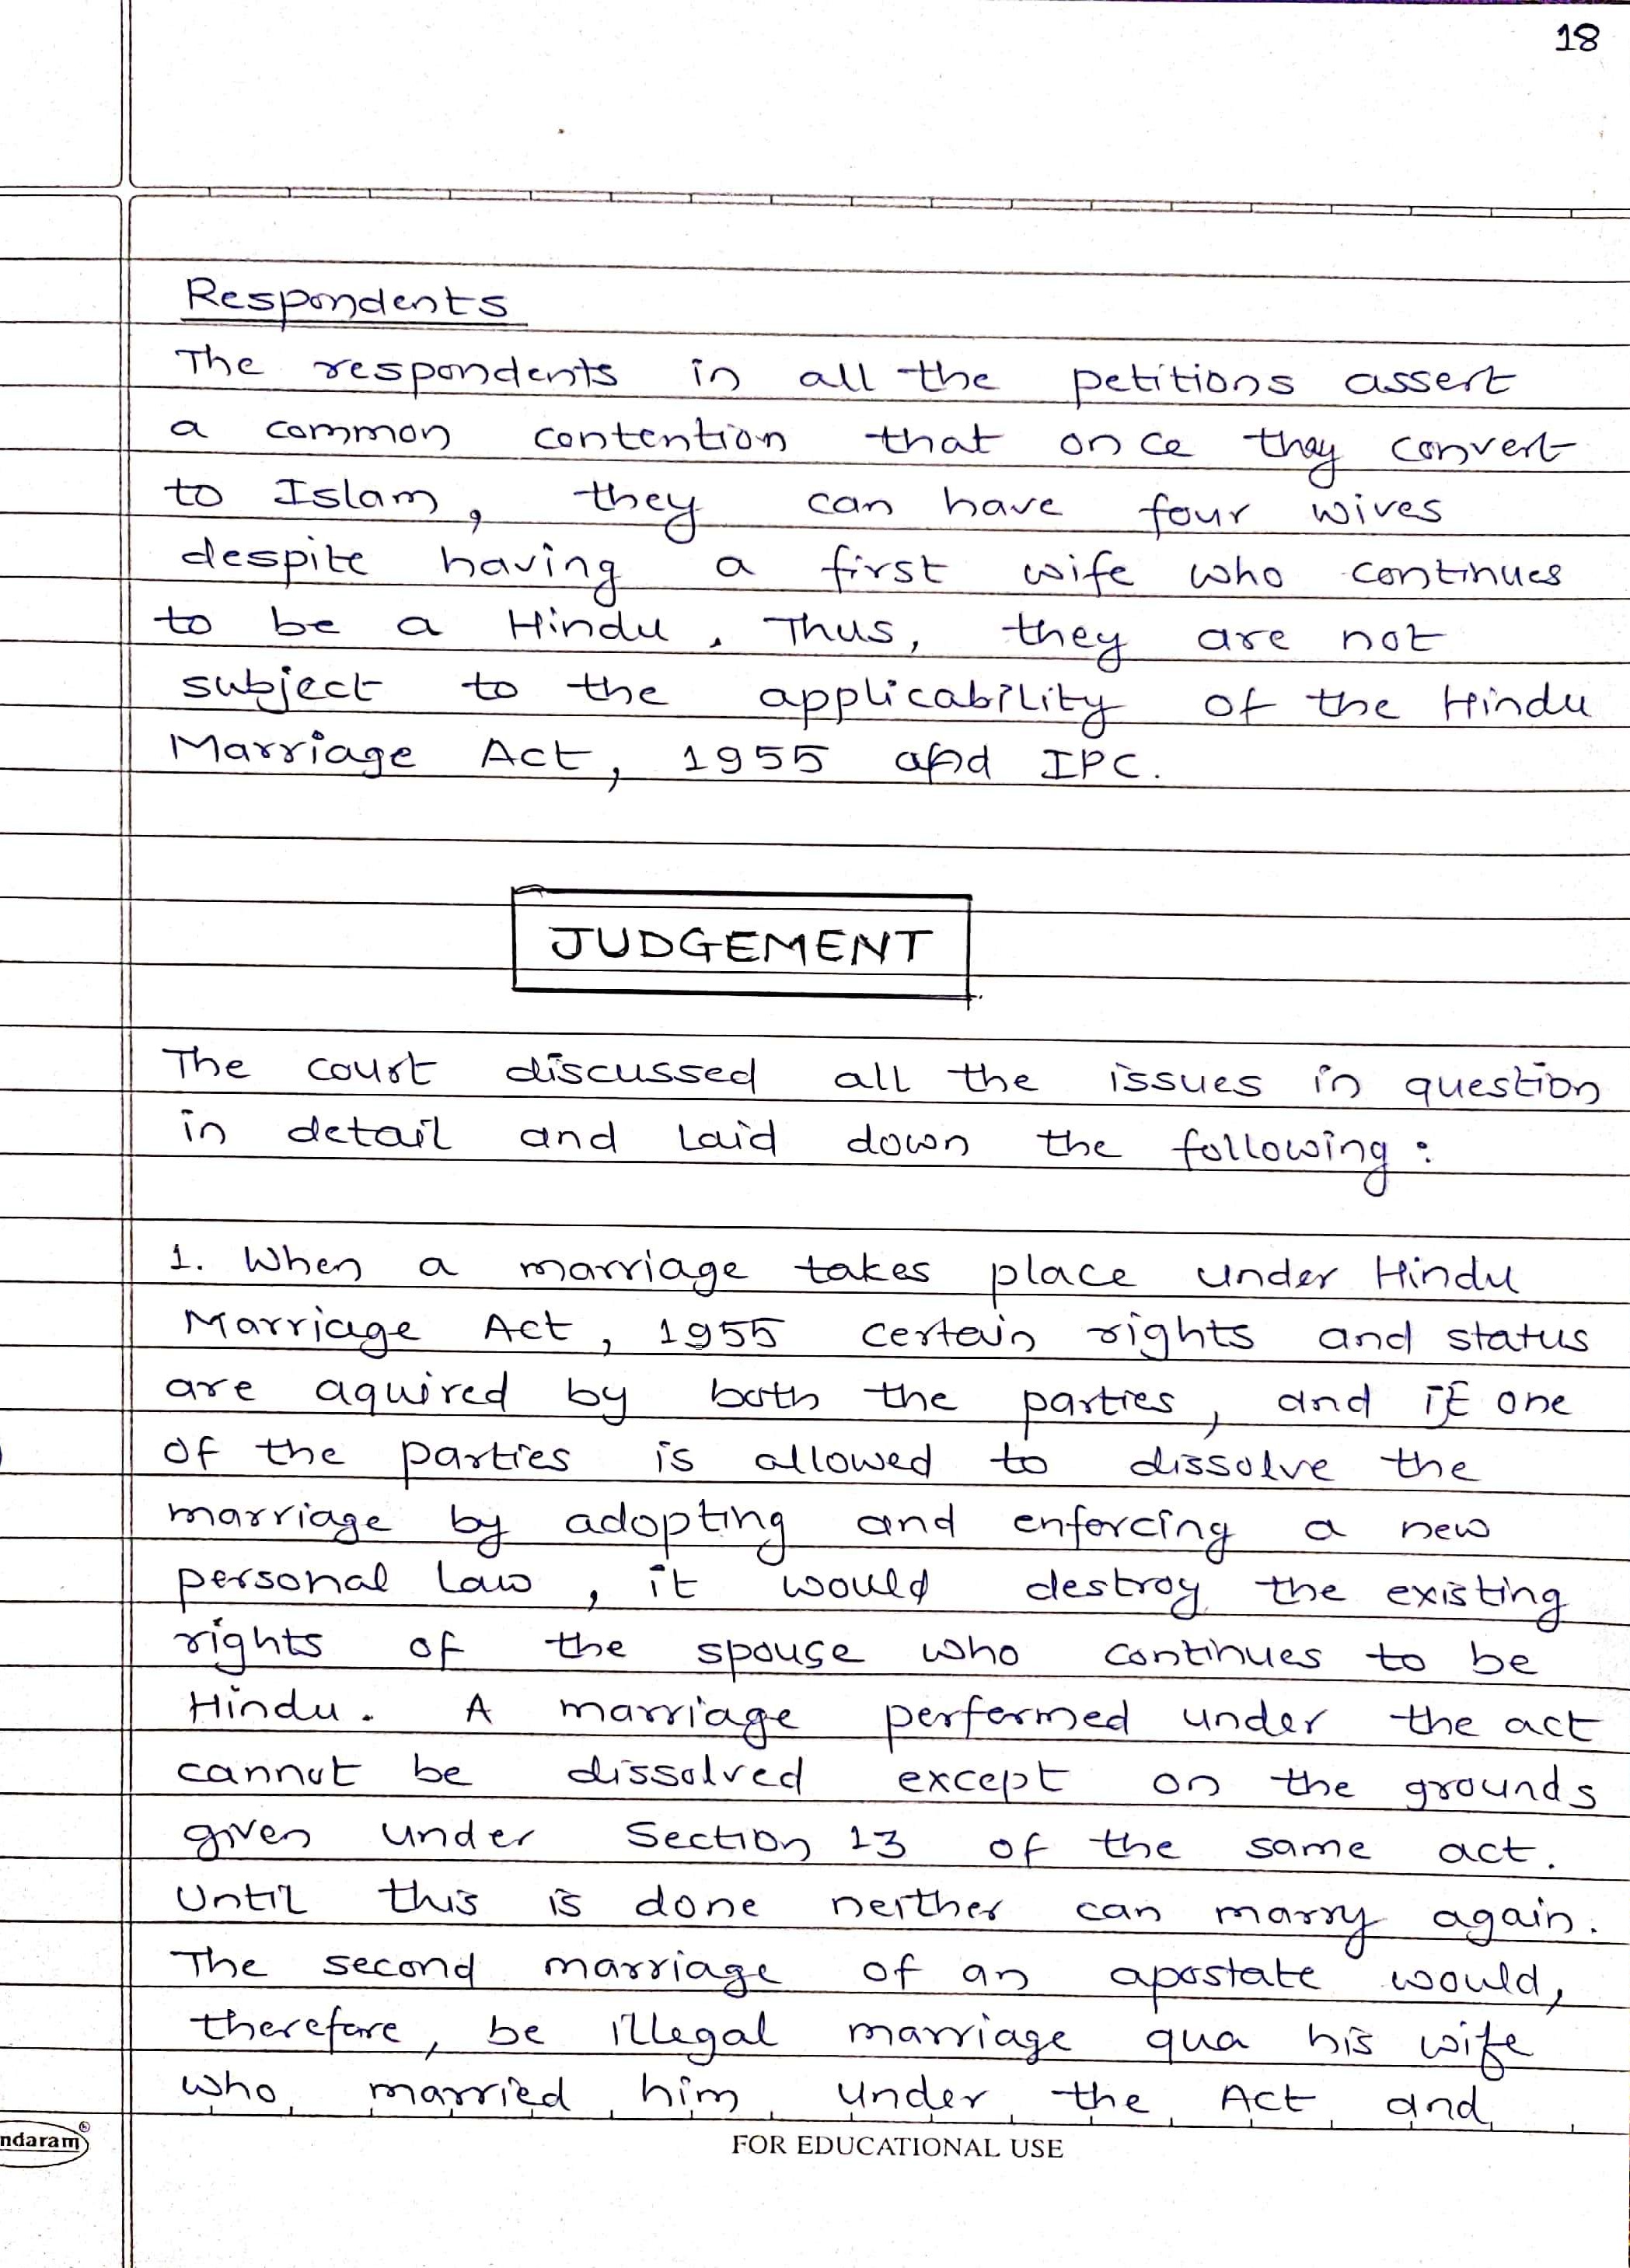 18
Respondents
The respondents in all the petitions assert
a common contention that once they convert
to Islam, they can have four wives
despite having a first wife who continues
to be a Hindu. Thus, they are not
subject to the applicability of the Hindu
Marriage Act, 1955 and IPC.
JUDGEMENT
The court discussed all the issues in question
in detail and laid down the following:
1. When a marriage takes place under Hindu
Marriage Act, 1955 certain rights and status
are aquired by both the parties, and if one
of the parties is allowed to dissolve the
marriage by adopting and enforcing a new
personal law, it would destroy the existing
rights of the spouse who continues to be
Hindu. A marriage performed under the act
cannot be dissolved except on the grounds
given under Section 13 of the same act.
Until this is done neither can marry again.
The second marriage of an apostate would,
therefore, be illegal marriage qua his wife
who married him under the Act and
ndaram
FOR EDUCATIONAL USE